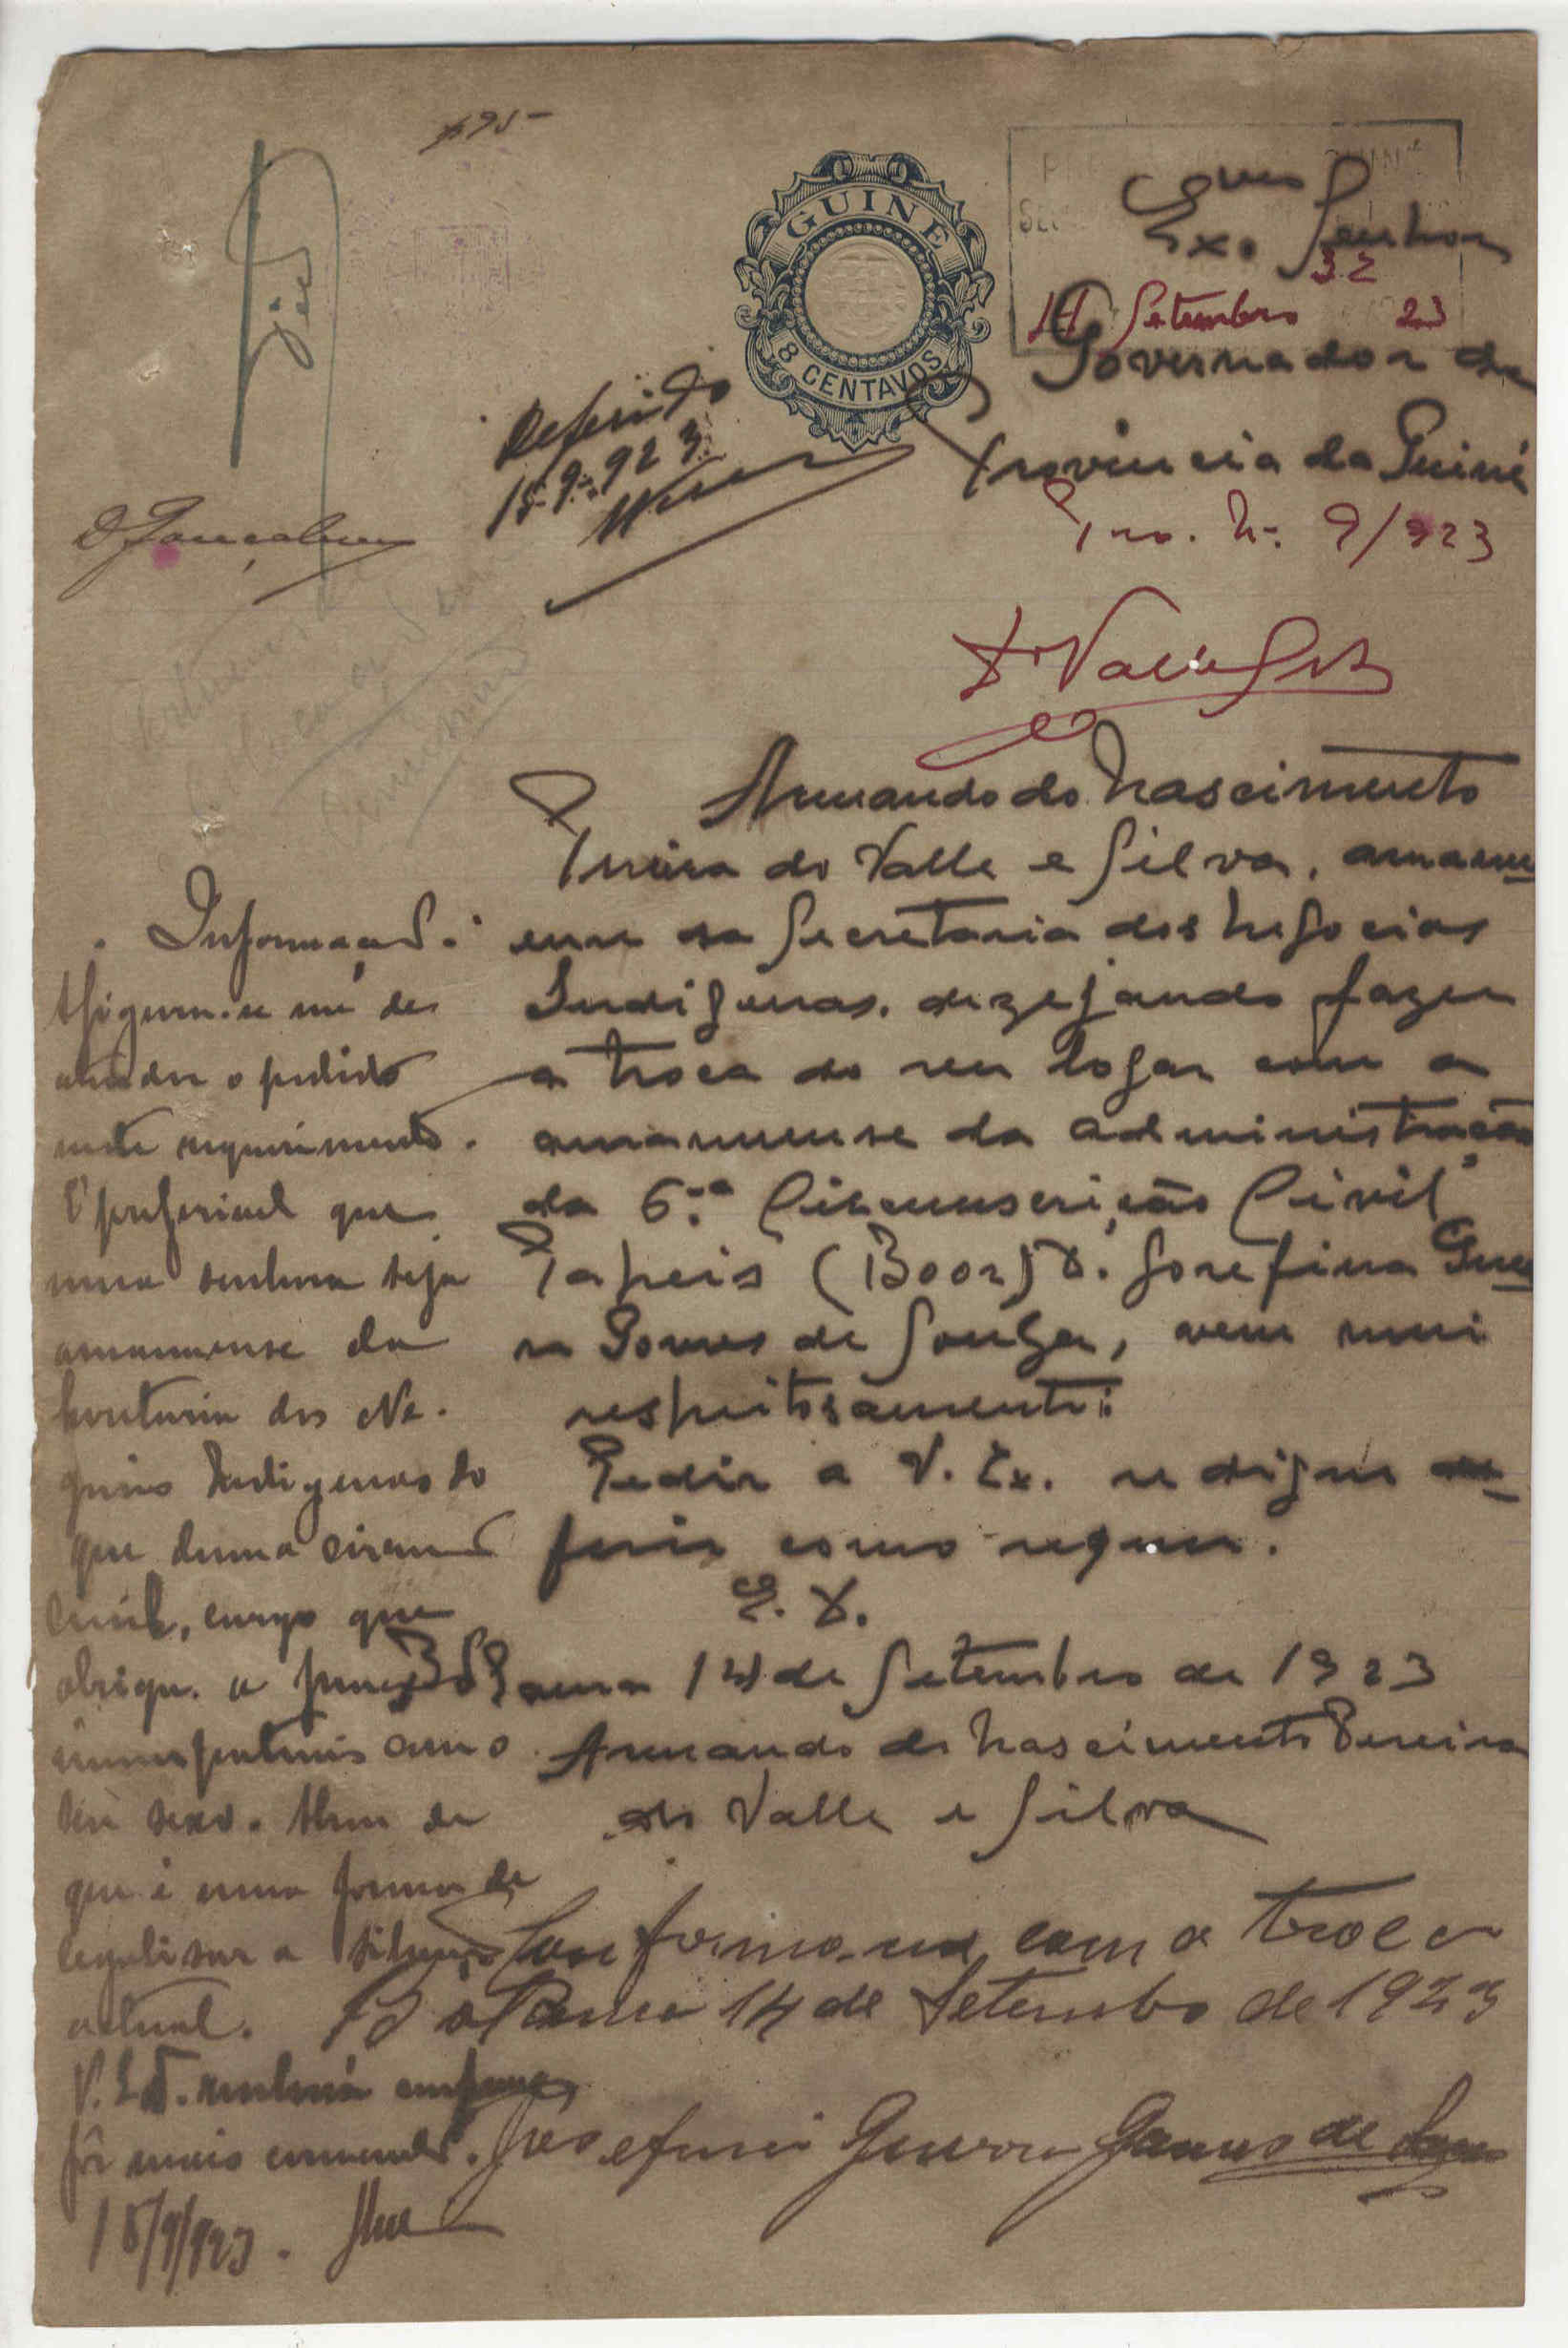 GUINE
8 CENTAVOS
Exmo Senhor
32
14 Setembro 23
Governador da
Provincia da Guiné
Pro. N.º 9/923
Deferido
15-9-923
Armando do Nascimento
Preira do Valle e Silva, amanu
ense da Secretaria dos Negocios
Indigenas, dezejando fazer
a troca do seu logar com a
amanuense da administração
da 6.ª Circunscrição Civil
Papeis (Boor) D. Josefina Guer
ra Gomes de Souza, vem mui
respeitosamente:
Pedir a V. Ex. se digne de
ferir como requer.
E. D.
Bolama 14 de Setembro de 1923
Armando do Nascimento Pereira
do Valle e Silva
Conformo-me com a troca
Bolama 14 de Setembro de 1923
Josefina Guerra Gomes de Souza
Informação:
Afigura-se me de
atender o pedido
neste requerimento.
É preferivel que
uma senhora seja
amanuense da
Secretaria dos Ne-
gocios Indigenas do
que duma circuns
civil, cargo que
obriga a funções
incompativeis com o
seu sexo. Alem de
que é uma forma de
legalisar a situação
actual.
V. Ex.ª resolverá como
fôr mais conveniente.
15/9/923.